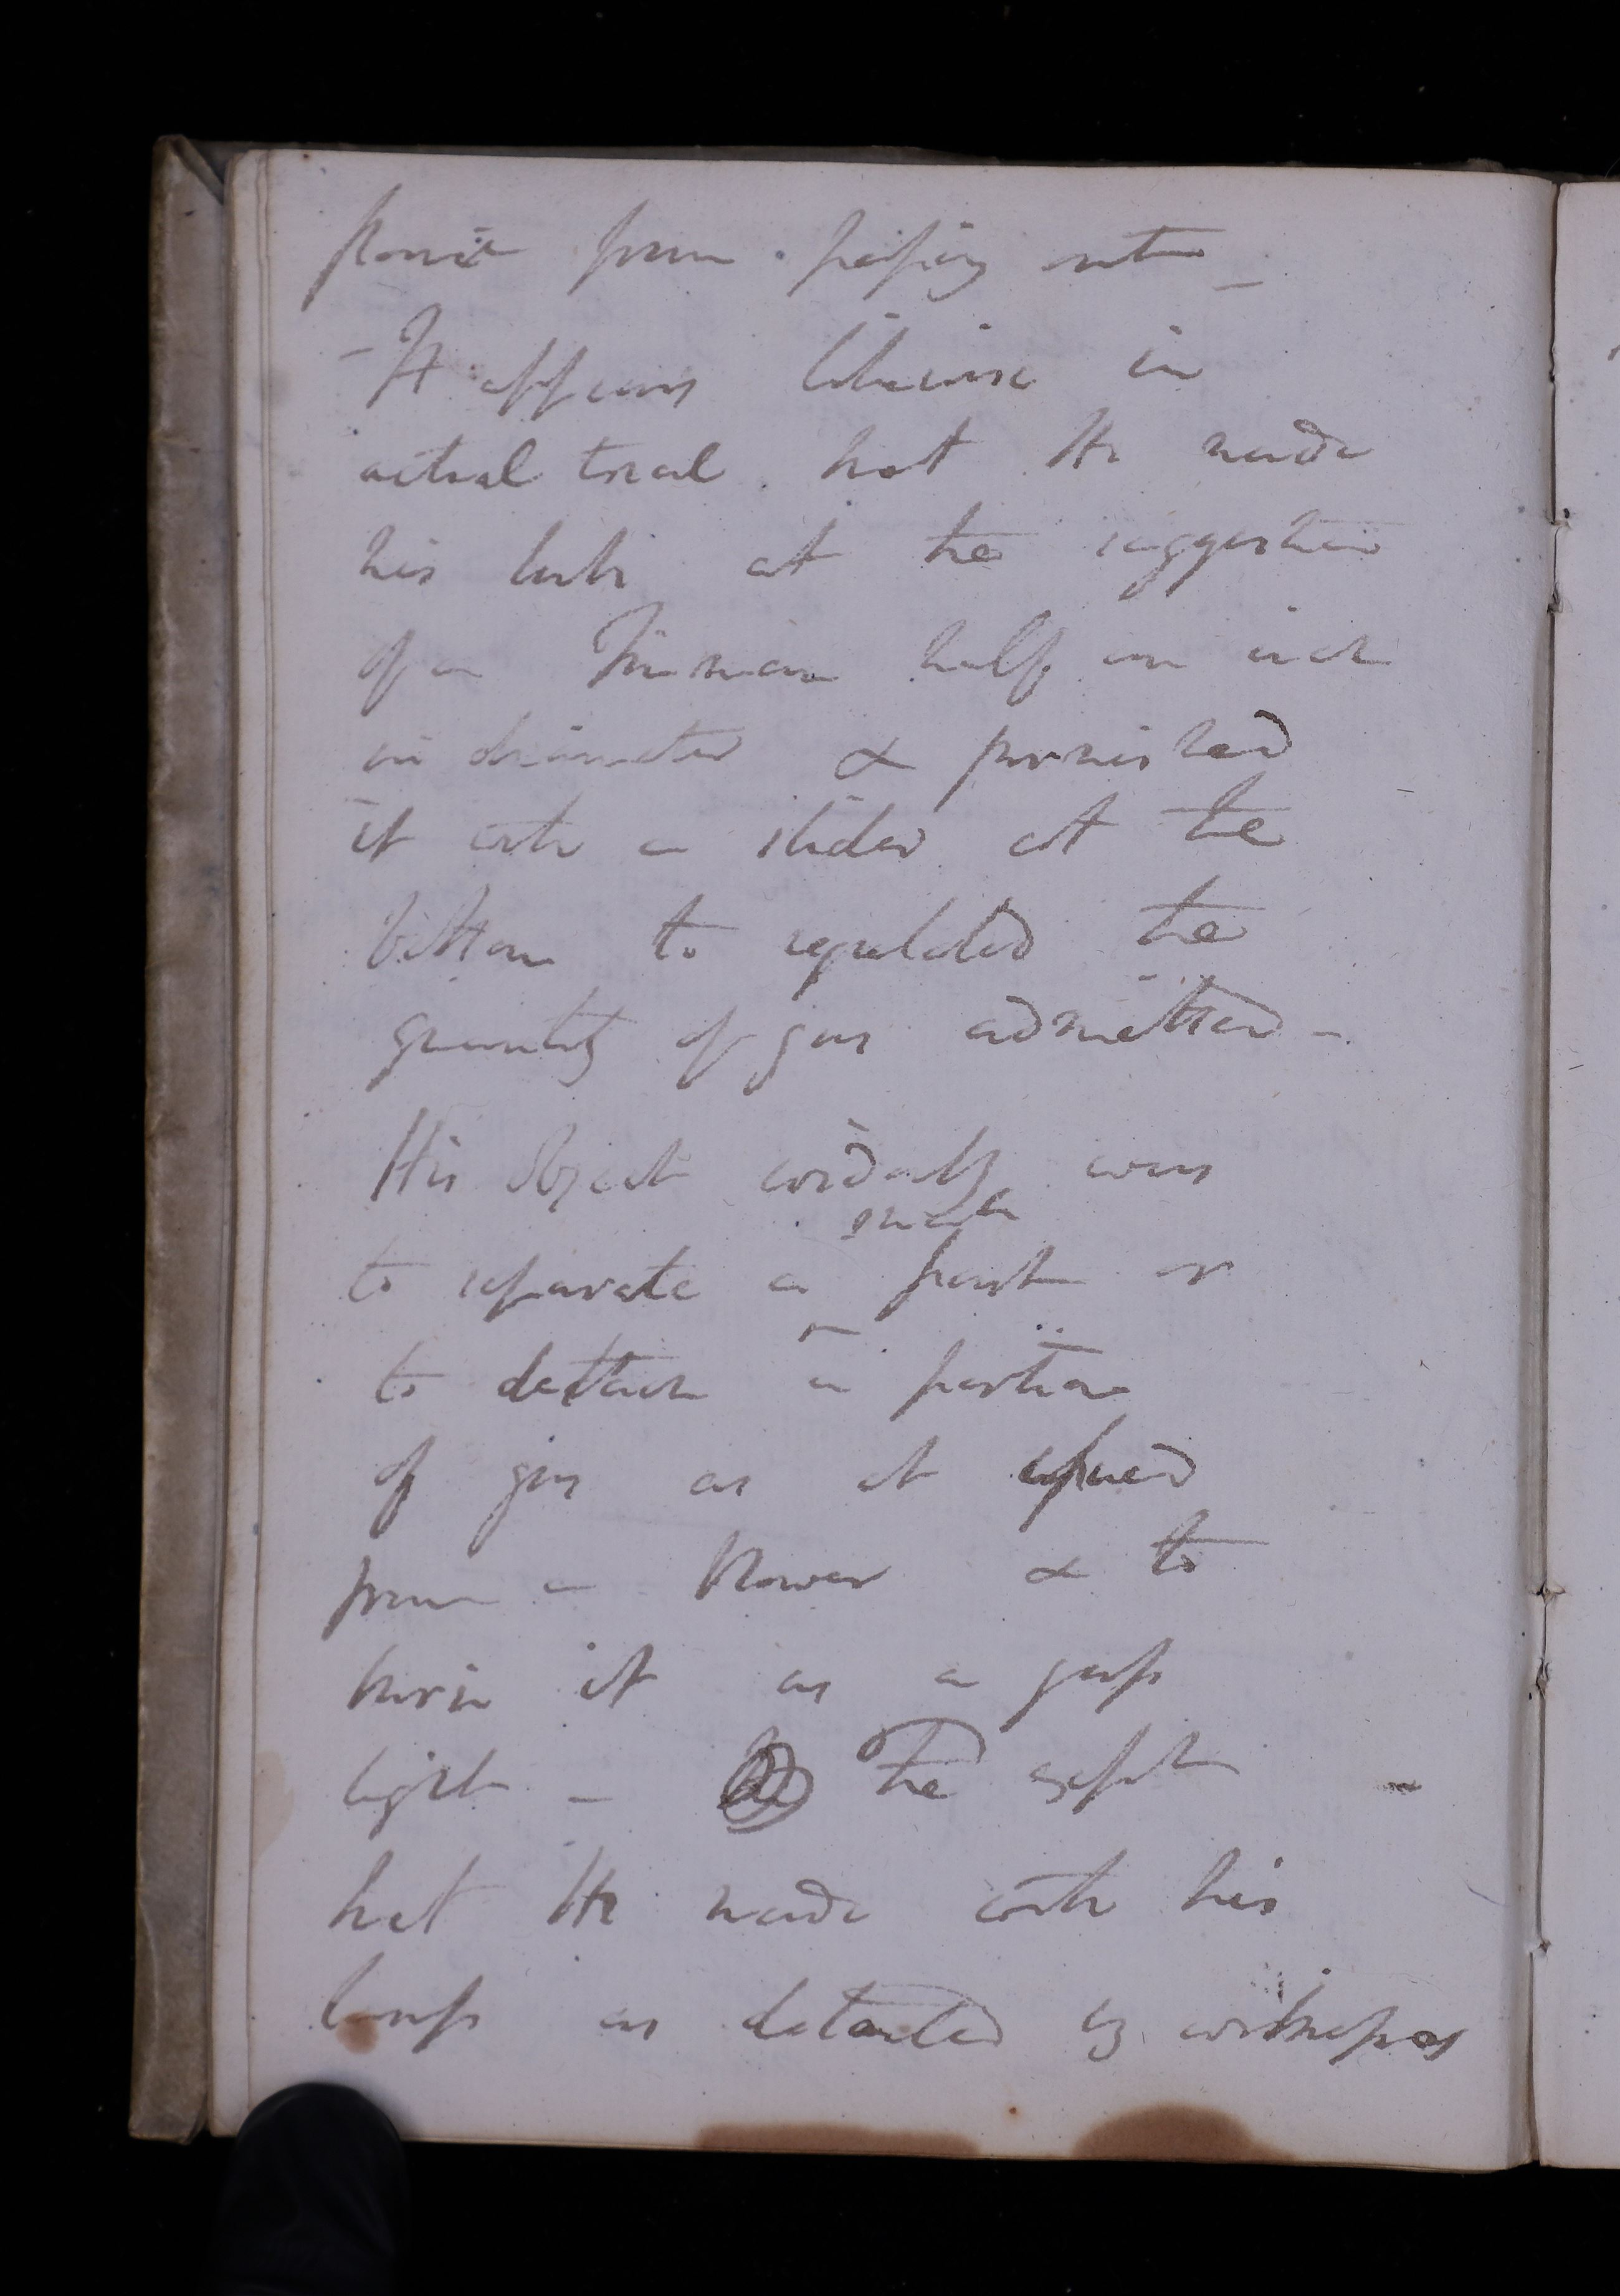 from passing out _
- It appears likewise in
actual trial that He made
his tube at the suggestion
of a Tinman half an inch
in diameter & furnished
it with a slider at the
bottom to regulated the
quantity of gas admitted -
His object evidently was
small
to separate a part or
to dettach a portion
of gas as it issued
from a Blower & to
burn it as a gass
light _ The expt
that He made with his
lamp as detailed by witnesses